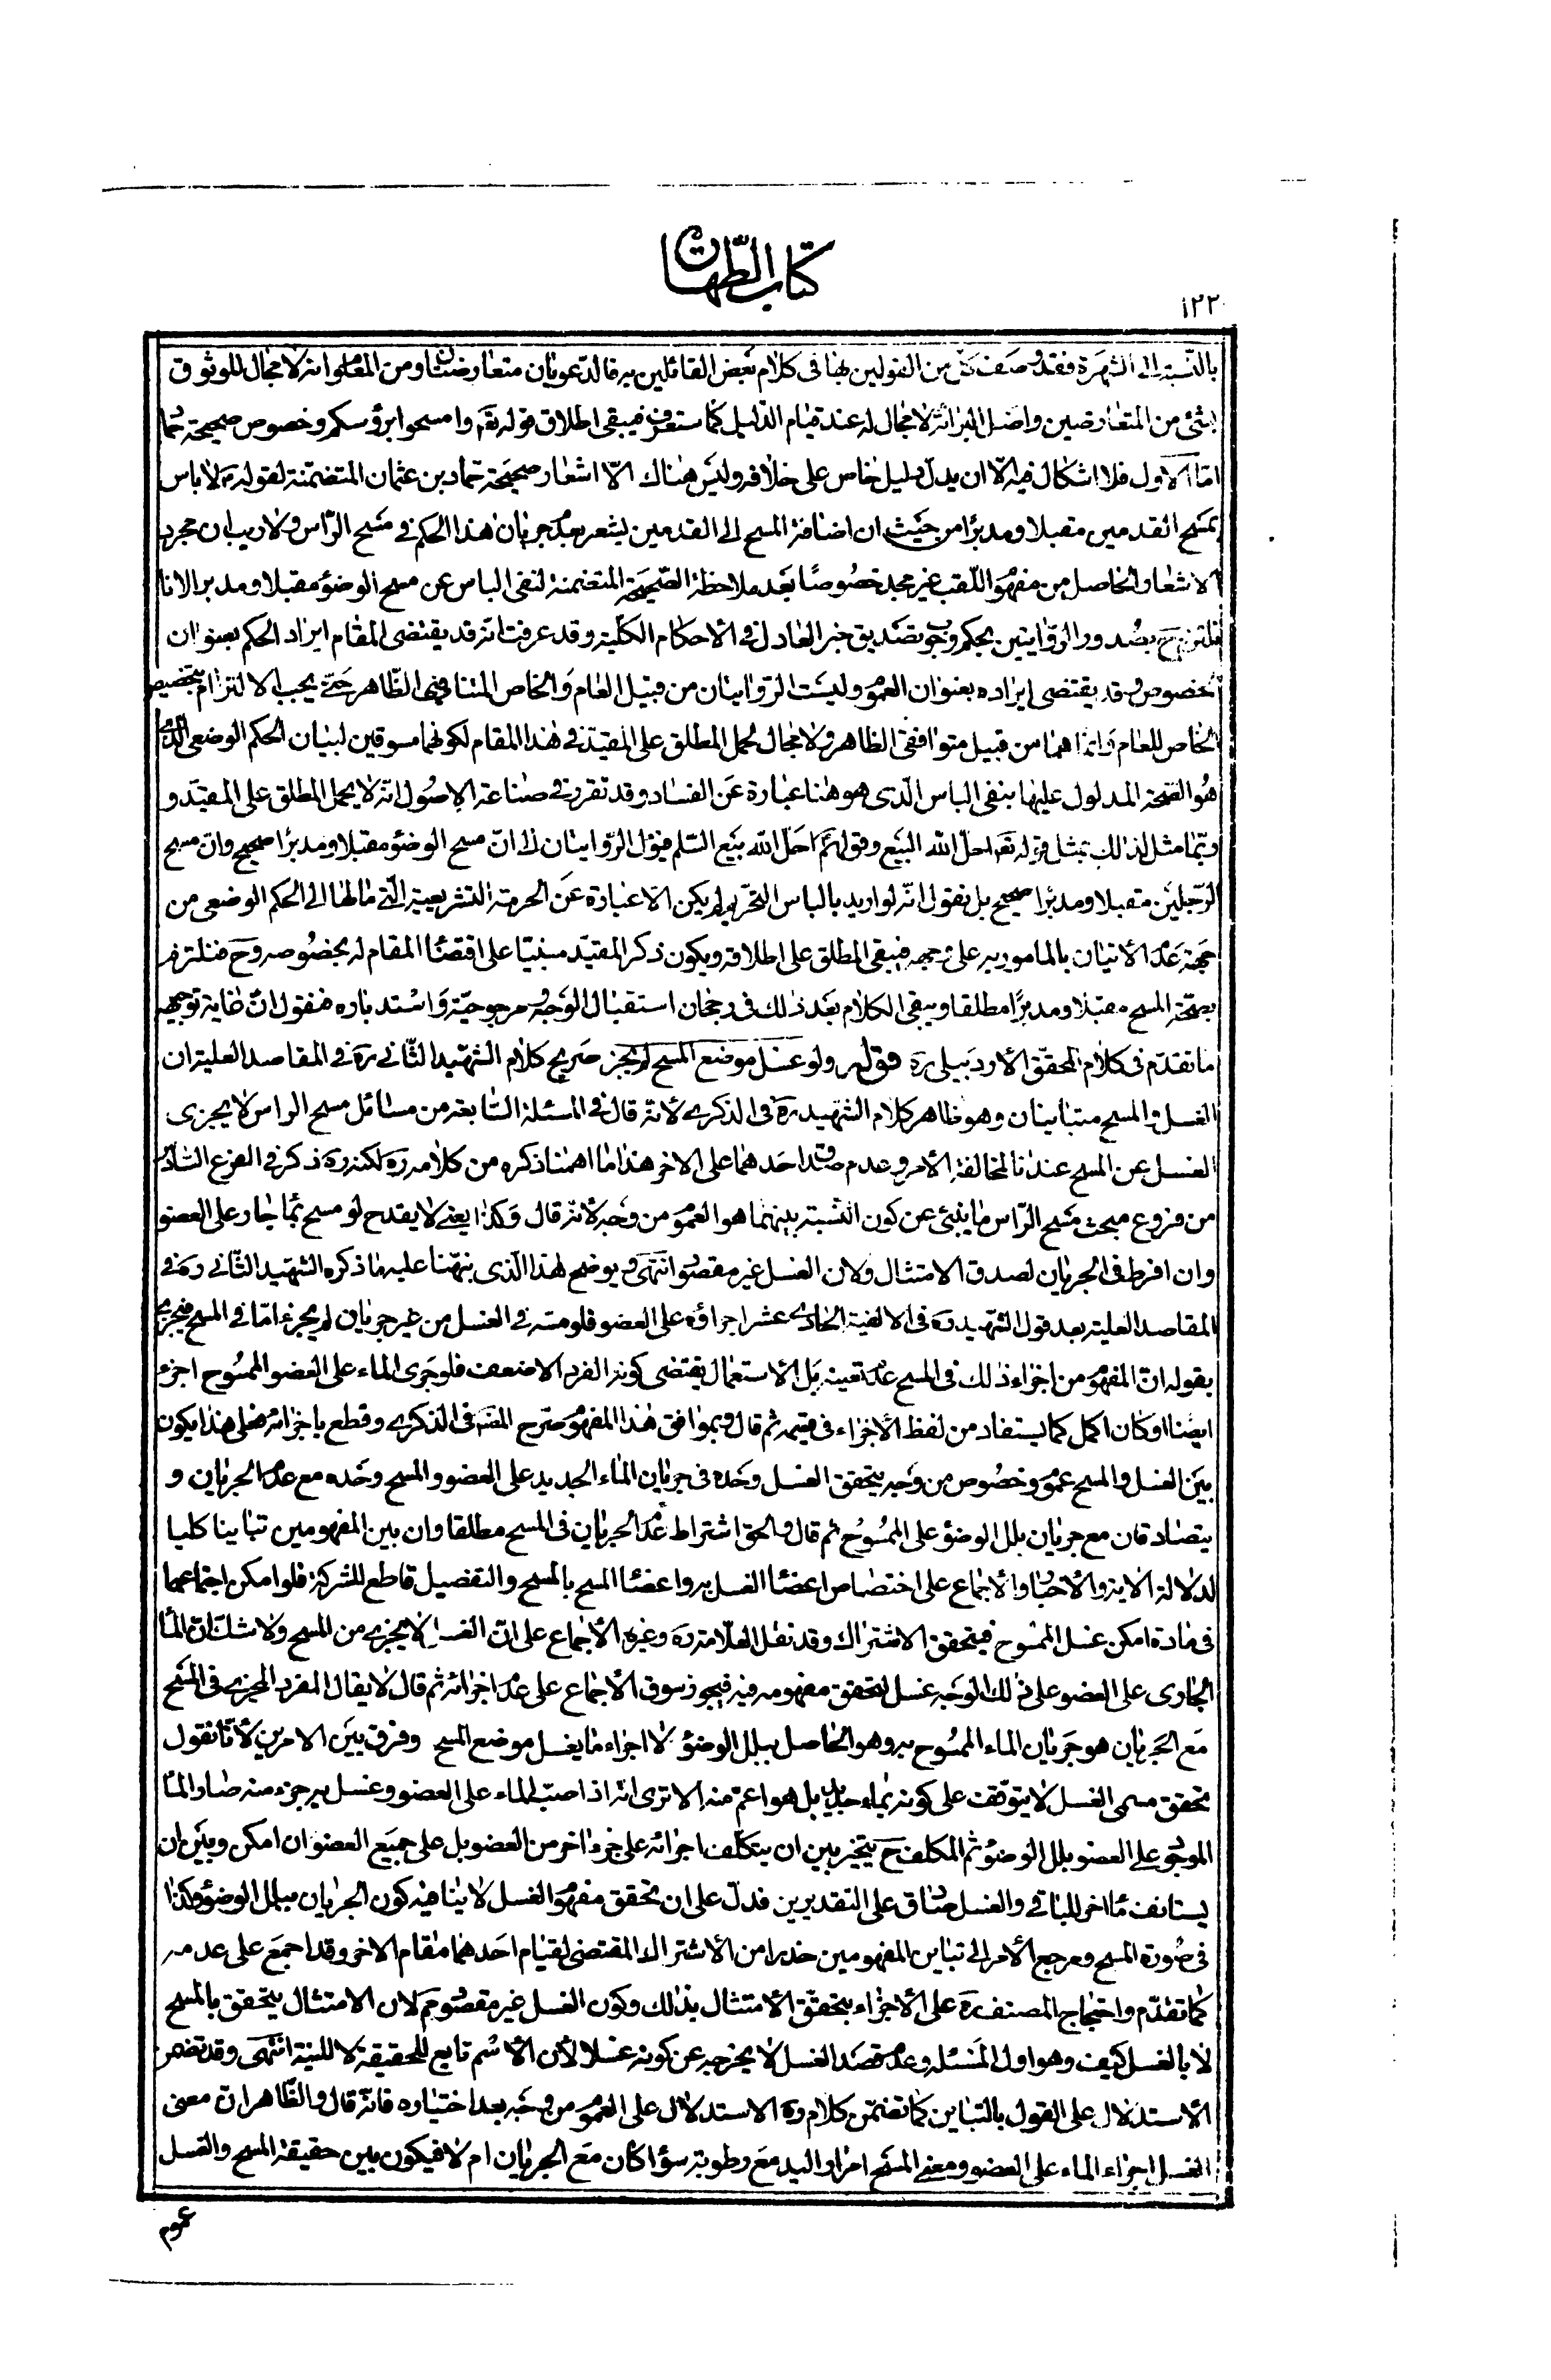 كتاب الطهارة
١٢٢
بالنسبة إلى الشهرة فقد وصف كل من القولين بها في كلام بعض القائلين به فالدعويان متعارضتان ومن المعلوم انه لا مجال للوثوق
بشئ من المتعارضين واصل البرائة لا مجال له عند قيام الدليل كما ستعرف فيبقى اطلاق قوله تعالى وامسحوا برؤسكم وخصوص صحيحة حماد
امّا الاول فلا اشكال فيه الّا ان يدل دليل خاص على خلافه وليس هناك الّا اشعار صحيحة حماد بن عثمان المتضمّنة لقوله ع لا باس
بمسح القدمين مقبلا ومدبرًا من حيث ان اضافة المسح الى القدمين يشعر بعدم جريان هذا الحكم في مسح الرّاس ولا ريب ان مجرد
الاشعار الحاصل من مفهوم اللّقب غير مجد خصوصًا بعد ملاحظة الصّحيحة المتضمنة لنفى الباس عن مسح الوضوء مقبلا ومدبرا لانا
فلتزم ح بصدور الرّوايتين بحكم وجوب تصديق خبر العادل في الأحكام الكلّية وقد عرفت انّه قد يقتضى المقام ايراد الحكم بعنوان
الخصوص وقد يقتضى ايراده بعنوان العموم وليست الرّوايتان من قبيل العام والخاص المتنافيى الظّاهر حتى يجب الالتزام بتخصيص
الخاص للعام وانما هما من قبيل متوافقى الظاهر ولا مجال لحمل المطلق على المقيّد في هذا المقام لكونهما مسوقين لبيان الحكم الوضعى الذى
هو الصّحة المدلول عليها بنفى الباس الّذى هو هنا عبارة عن الفساد وقد تقرر في صناعة الاصول انّه لا يحمل المطلق على المقيّد و
ربّما مثل لذلك بمثل قوله تعالى احلّ الله البيع وقولهم احلّ الله بيع السّلم فيؤل الرّوايتان الى انّ مسح الوضوء مقبلا ومدبرًا صحيح وان مسح
الرّجلين مقبلا ومدبرًا صحيح بل نقول انّه لو اريد بالباس التحريم لم يكن الّا عبارة عن الحرمة التشريعية الّتى مالها الى الحكم الوضعى من
جهة عدم الأتيان بالمامور به على وجهه فيبقى المطلق على اطلاقه ويكون ذكر المقيّد مبنيّا على اقتضاء المقام له بخصوصه وح فنلتزم
بصحّة المسح مقبلا ومدبرًا مطلقا ويبقى الكلام بعد ذلك في رجحان استقبال الوجه ومرجوحيّة واستدباره فنقول انّ غاية توجيهه
ما تقدّم في كلام المحقّق الأردبيلى ره قوله ولو غسل موضع المسح لم يجز صريح كلام الشهيد الثّانى ره في المقاصد العلية ان
الغسل والمسح متباينان وهو ظاهر كلام الشهيد ره في الذكرى لأنّه قال في المسئلة السّابعة من مسائل مسح الراس لا يجزى
الغسل عن المسح عندنا لمخالفة الأمر وعدم صدق احدهما على الاخر هذا ما اهمنا ذكره من كلامه ره لكنه ره ذكر في الفرع السّادس
من فروع مبحث مسح الرّاس ما ينبئ عن كون النّسبة بينهما هو العموم من وجه لأنّه قال وكذا يعنى لا يقدح لو مسح بماء جار على العضو
وان افرط في الجريان لصدق الامتثال ولان الغسل غير مقصود انتهى ويوضح هذا الّذى نبّهنا عليه ما ذكره الشهيد الثّانى ره في
المقاصد العلية بعد قول الشهيد ره في الالفية الحادى عشر اجراؤه على العضو فلو مسّه في الغسل من غير جريان لم يجز امّا في المسح فيجزى
بقوله انّ المفهوم من اجزاء ذلك في المسح عدم تعينه بل الأستعمال يقتضى كونه الفرد الاضعف فلو جرى الماء على العضو الممسوح اجزء
ايضا او كان اكمل كما يستفاد من لفظ الأجزاء في قسيمه ثم قال وبموافق هذا المفهوم صرّح المصّ في الذكرى وقطع باجزائه فعلى هذا يكون
بين الغسل والمسح عموم وخصوص من وجه يتحقق الغسل وحده في جريان الماء الجديد على العضو والمسح وحده مع عدم الجريان و
يتصادقان مع جريان بلل الوضوء على الممسوح ثم قال والحق اشتراط عدم الجريان في المسح مطلقا وان بين المفهومين تباينا كليا
لدلالة الاية والأخبار والأجماع على اختصاص اعضاء الغسل به واعضاء المسح بالمسح والتفصيل قاطع للشركة فلو امكن اجتماعهما
في مادة امكن غسل الممسوح فيتحقق الاشتراك وقد نقل العلّامة ره وغيره الأجماع على انّ الغسل لا يجزى من المسح ولا شك انّ الماء
الجارى على العضو على ذلك الوجه غسل لتحقق مفهومه فيه فيجوز سوق الأجماع على عدم اجزائه ثم قال لا يقال المفرد المجزى في المسح
مع الجريان هو جريان الماء الممسوح به وهو الحاصل ببلل الوضوء لا اجزاء ما يغسل موضع المسح وفرق بين الامرين لأنّا نقول
تحقق مسمى الغسل لا يتوقّف على كونه بماء جديد بل هو اعمّ منه الا ترى انّه اذا صبّ الماء على العضو وغسل به جزء منه صار الماء
الموجود على العضو بلل الوضوء ثم المكلف ح يتخير بين ان يتكلّف اجرائه على جزء اخر من العضو بل على جميع العضو ان امكن وبين ان
يستانف ماء اخر للباقى والغسل صادق على التقديرين فدلّ على ان تحقق مفهوم الغسل لا ينافيه كون الجريان ببلل الوضوء وكذا
في صورة المسح ومرجع الأمر الى تباين المفهومين حذرا من الأشتراك المقتضى لقيام احدهما مقام الاخر وقد اجمع على عدمه
كما تقدّم واحتجاج المصنف ره على الأجزاء بتحقّق الأمتثال بذلك وكون الغسل غير مقصود ... لان الامتثال يتحقق بالمسح
لا بالغسل كيف وهو اول المسئلة وعدم قصد الغسل لا يخرجه عن كونه غسلا لأن الأسم تابع للحقيقة لا للنية انتهى وقد تضمن
الأستدلال على القول بالتباين كما تضمّن كلامه ره الاستدلال على العموم من وجه بعد اختياره فانّه قال والظّاهر ان معنى
الغسل اجراء الماء على العضو ومعنى المسح امرار اليد مع رطوبة سواء كان مع الجريان ام لا فيكون بين حقيقة المسح والغسل
عموم